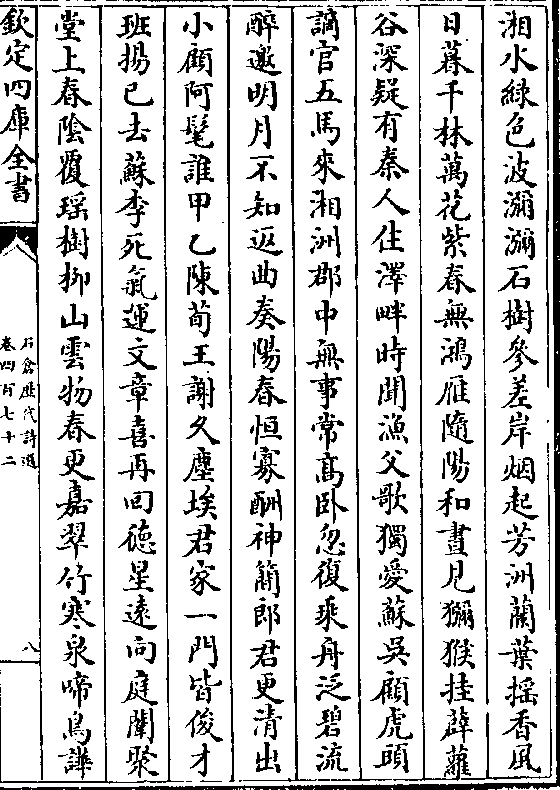 湘水綠色波瀰瀰石樹參差岸烟起芳洲蘭葉摇香風
日暮千林萬花紫春無鴻雁隨陽和晝見獼猴挂薜蘿
谷深疑有秦人住澤畔時聞漁父歌獨愛蘇吳顧虎頭
謫官五馬來湘洲郡中無事常高卧忽復乗舟泛碧流
醉邀明月不知返曲奏陽春恒寡酬神簫郎君更清出
小顧阿髦誰甲乙陳荀王謝久塵埃君家一門皆俊才
班揚已去蘇李死氣運文章喜再回徳星遠向庭闈聚
堂上春陰覆瑶樹柳山雲物春更嘉翠竹寒泉啼鳥譁
欽定四庫全書
石倉歴代詩選
卷四百七十二
八